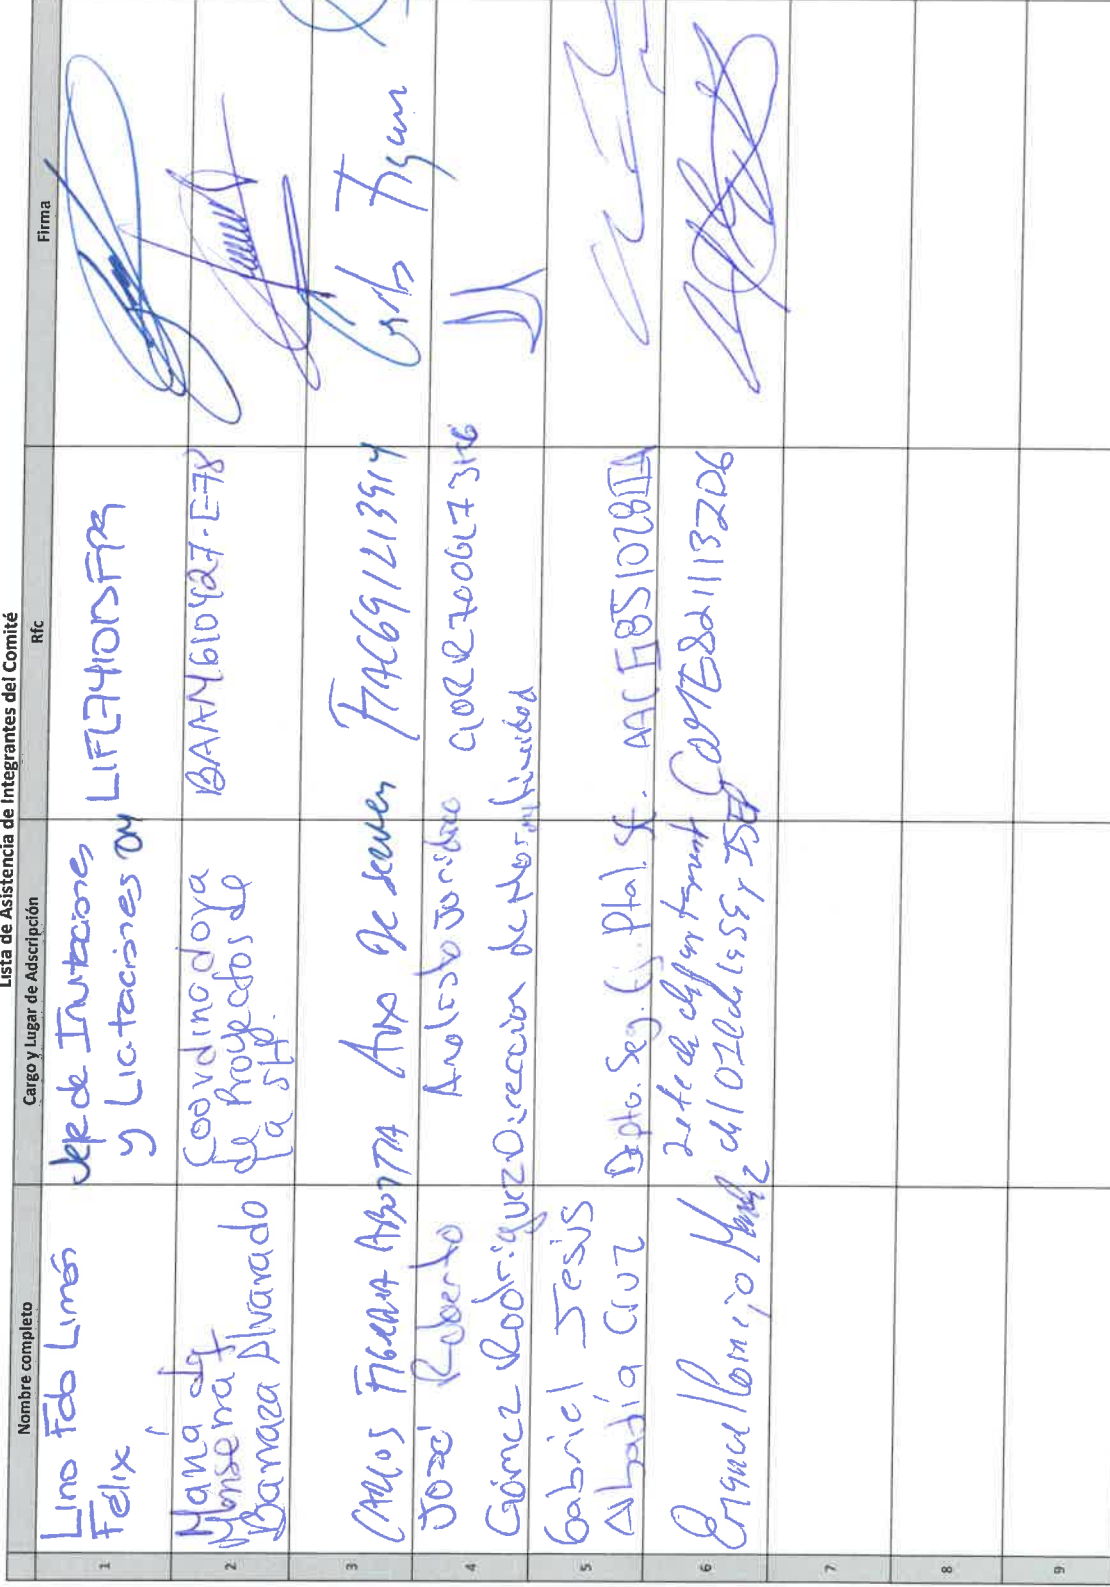 Lista de Asistencia de Integrantes del Comité
Nombre completo
Cargo y Lugar de Adscripción
Rfc
Firma
1
Lino Fdo Limón
Félix
Jefe de Invitaciones
y Licitaciones OM
2
Maria de
Monserrat
Barraza Alvarado
Coordinadora
de Proyectos de
la SH.
BAAM610427-E78
3
CARLOS FIGUEROA ABOYTIA
Aux de serven
FIAC691213914
Carlos Figueroa
4
José Roberto
Gómez Rodriguez
Analista Juridico
Direccion de Normatividad
5
Gabriel Jesús
Abadía Cruz
Dpto. Seg. Ptal. SF.
AACG851028IIA
6
Jefe de departament
del OIC de la SSS y ISEA
7
8
9